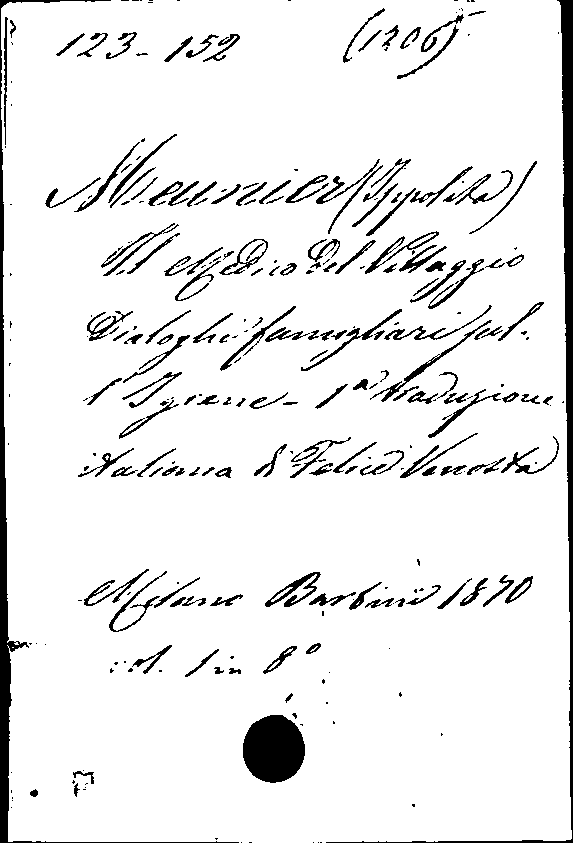 123-152 (1206)
Meunier (Ippolita)
Il Medico del Villaggio
Dialoghi famigliari sul-
l'Igiene - 1ª traduzione
italiana di Felice Venosta
Milano Barbini 1870
vol. 1 in 8º